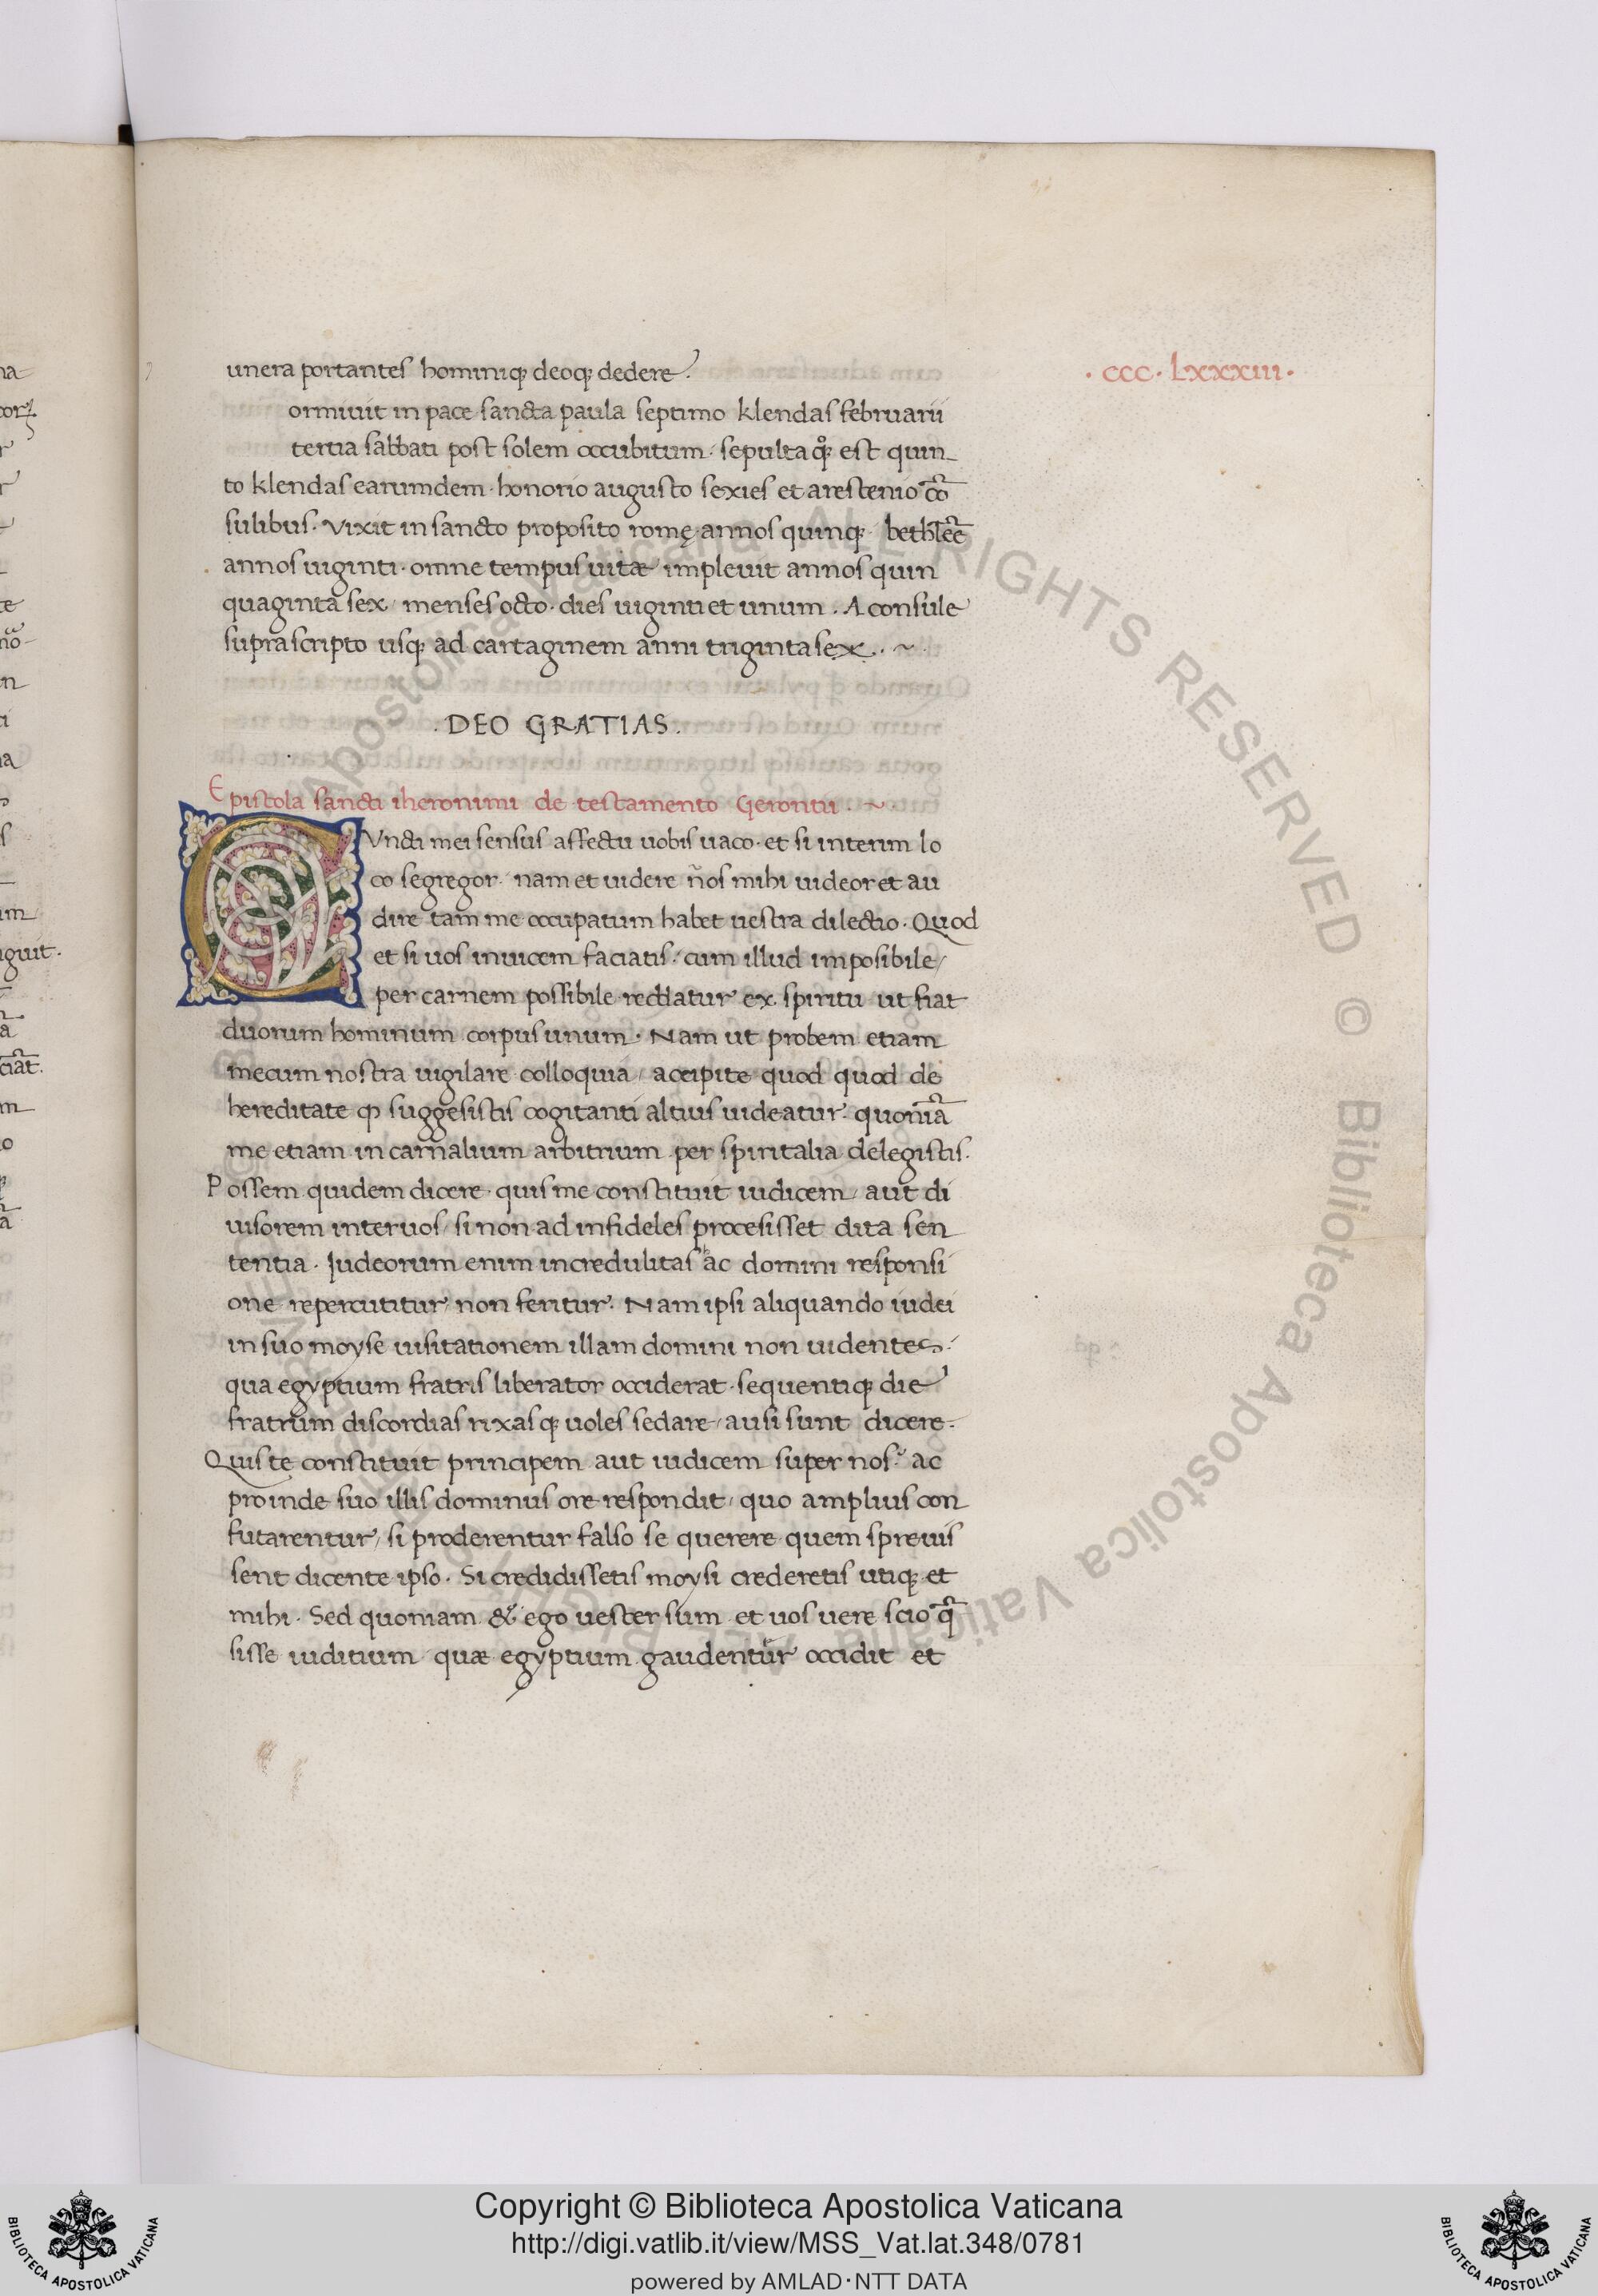 unera portantes hominiq; deoq; dedere.
· CCC · LXXXIII ·
ormiuit in pace sancta paula septimo klendas februarii
tertia sabbati post solem occubitum · sepulta q͛ est quin
to klendas earumdem · honorio augusto sexies et arestenio cō
sulibus · Vixit in sancto proposito romę annos quinq; bethleē
annos uiginti · omne tempus uitæ impleuit annos quin
quaginta sex / menses octo · dies uiginti et unum . A consule
suprascripto usq; ad cartaginem anni triginta sex . ~
. DEO GRATIAS .
Epistola sancti iheronimi de testamento Gerontii . ~
CVncti mei sensus affectu uobis uaco · et si interim lo
co segregor · nam et uidere ños mihi uideor et au
dire tam me occupatum habet uestra dilectio · Quod
et si uos inuicem faciatis · cum illud imposibile /
per carnem possibile reddatur ex spiritu ut fiat
duorum hominum corpus unum · Nam ut probem etiam
mecum nostra uigilare colloquia / accipite quod quod de
hereditate ꝙ suggesistis cogitanti altius uideatur · quoniā
me etiam in carnalium arbitrium per spiritalia delegistis.
Possem quidem dicere · quis me constituit iudicem / aut di
uisorem inter uos / si non ad infideles procesisset dita sen
tentia · Iudeorum enim incredulitas ac domini responsi
one repercutitur non feritur · Nam ipsi aliquando iudei
in suo moyse uisitationem illam domini non uidentes ·
qua egyptium fratris liberator occiderat · sequentiq; die
fratrum discordias rixasq; uoles sedare / ausi sunt dicere ·
Quis te constituit principem aut iudicem super nos · ac
proinde suo illis dominus ore respondit / quo amplius con
futarentur / si proderentur falso se querere quem spreuis
sent dicente ipso · Si credidissetis moysi crederetis utiq; et
mihi · Sed quoniam & ego uester sum et uos uere scio q̄
sisse iuditium quæ egyptium gaudentur occidit et
Copyright © Biblioteca Apostolica Vaticana
http://digi.vatlib.it/view/MSS_Vat.lat.348/0781
powered by AMLAD·NTT DATA
BIBLIOTECA APOSTOLICA VATICANA
BIBLIOTECA APOSTOLICA VATICANA